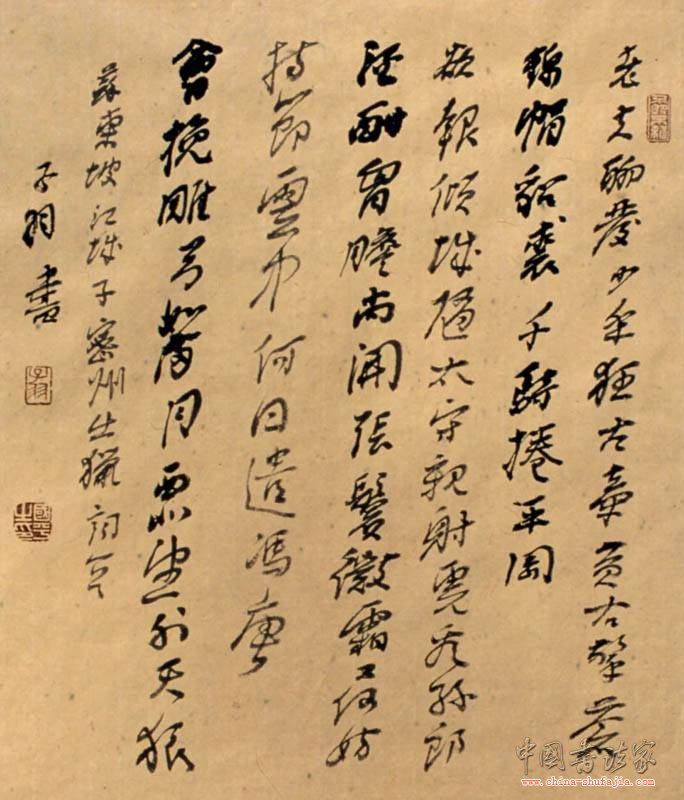 老夫聊發少年狂左牽黃右擎蒼
錦帽貂裘千騎捲平岡
欲報傾城隨太守親射虎看孫郎
酒酣胸膽尚開張鬢微霜又何妨
持節雲中何日遣馮唐
會挽雕弓如滿月西北望射天狼
蘇東坡江城子密州出獵詞
子羽書
子羽
中國書法家
www.china-shufajia.com